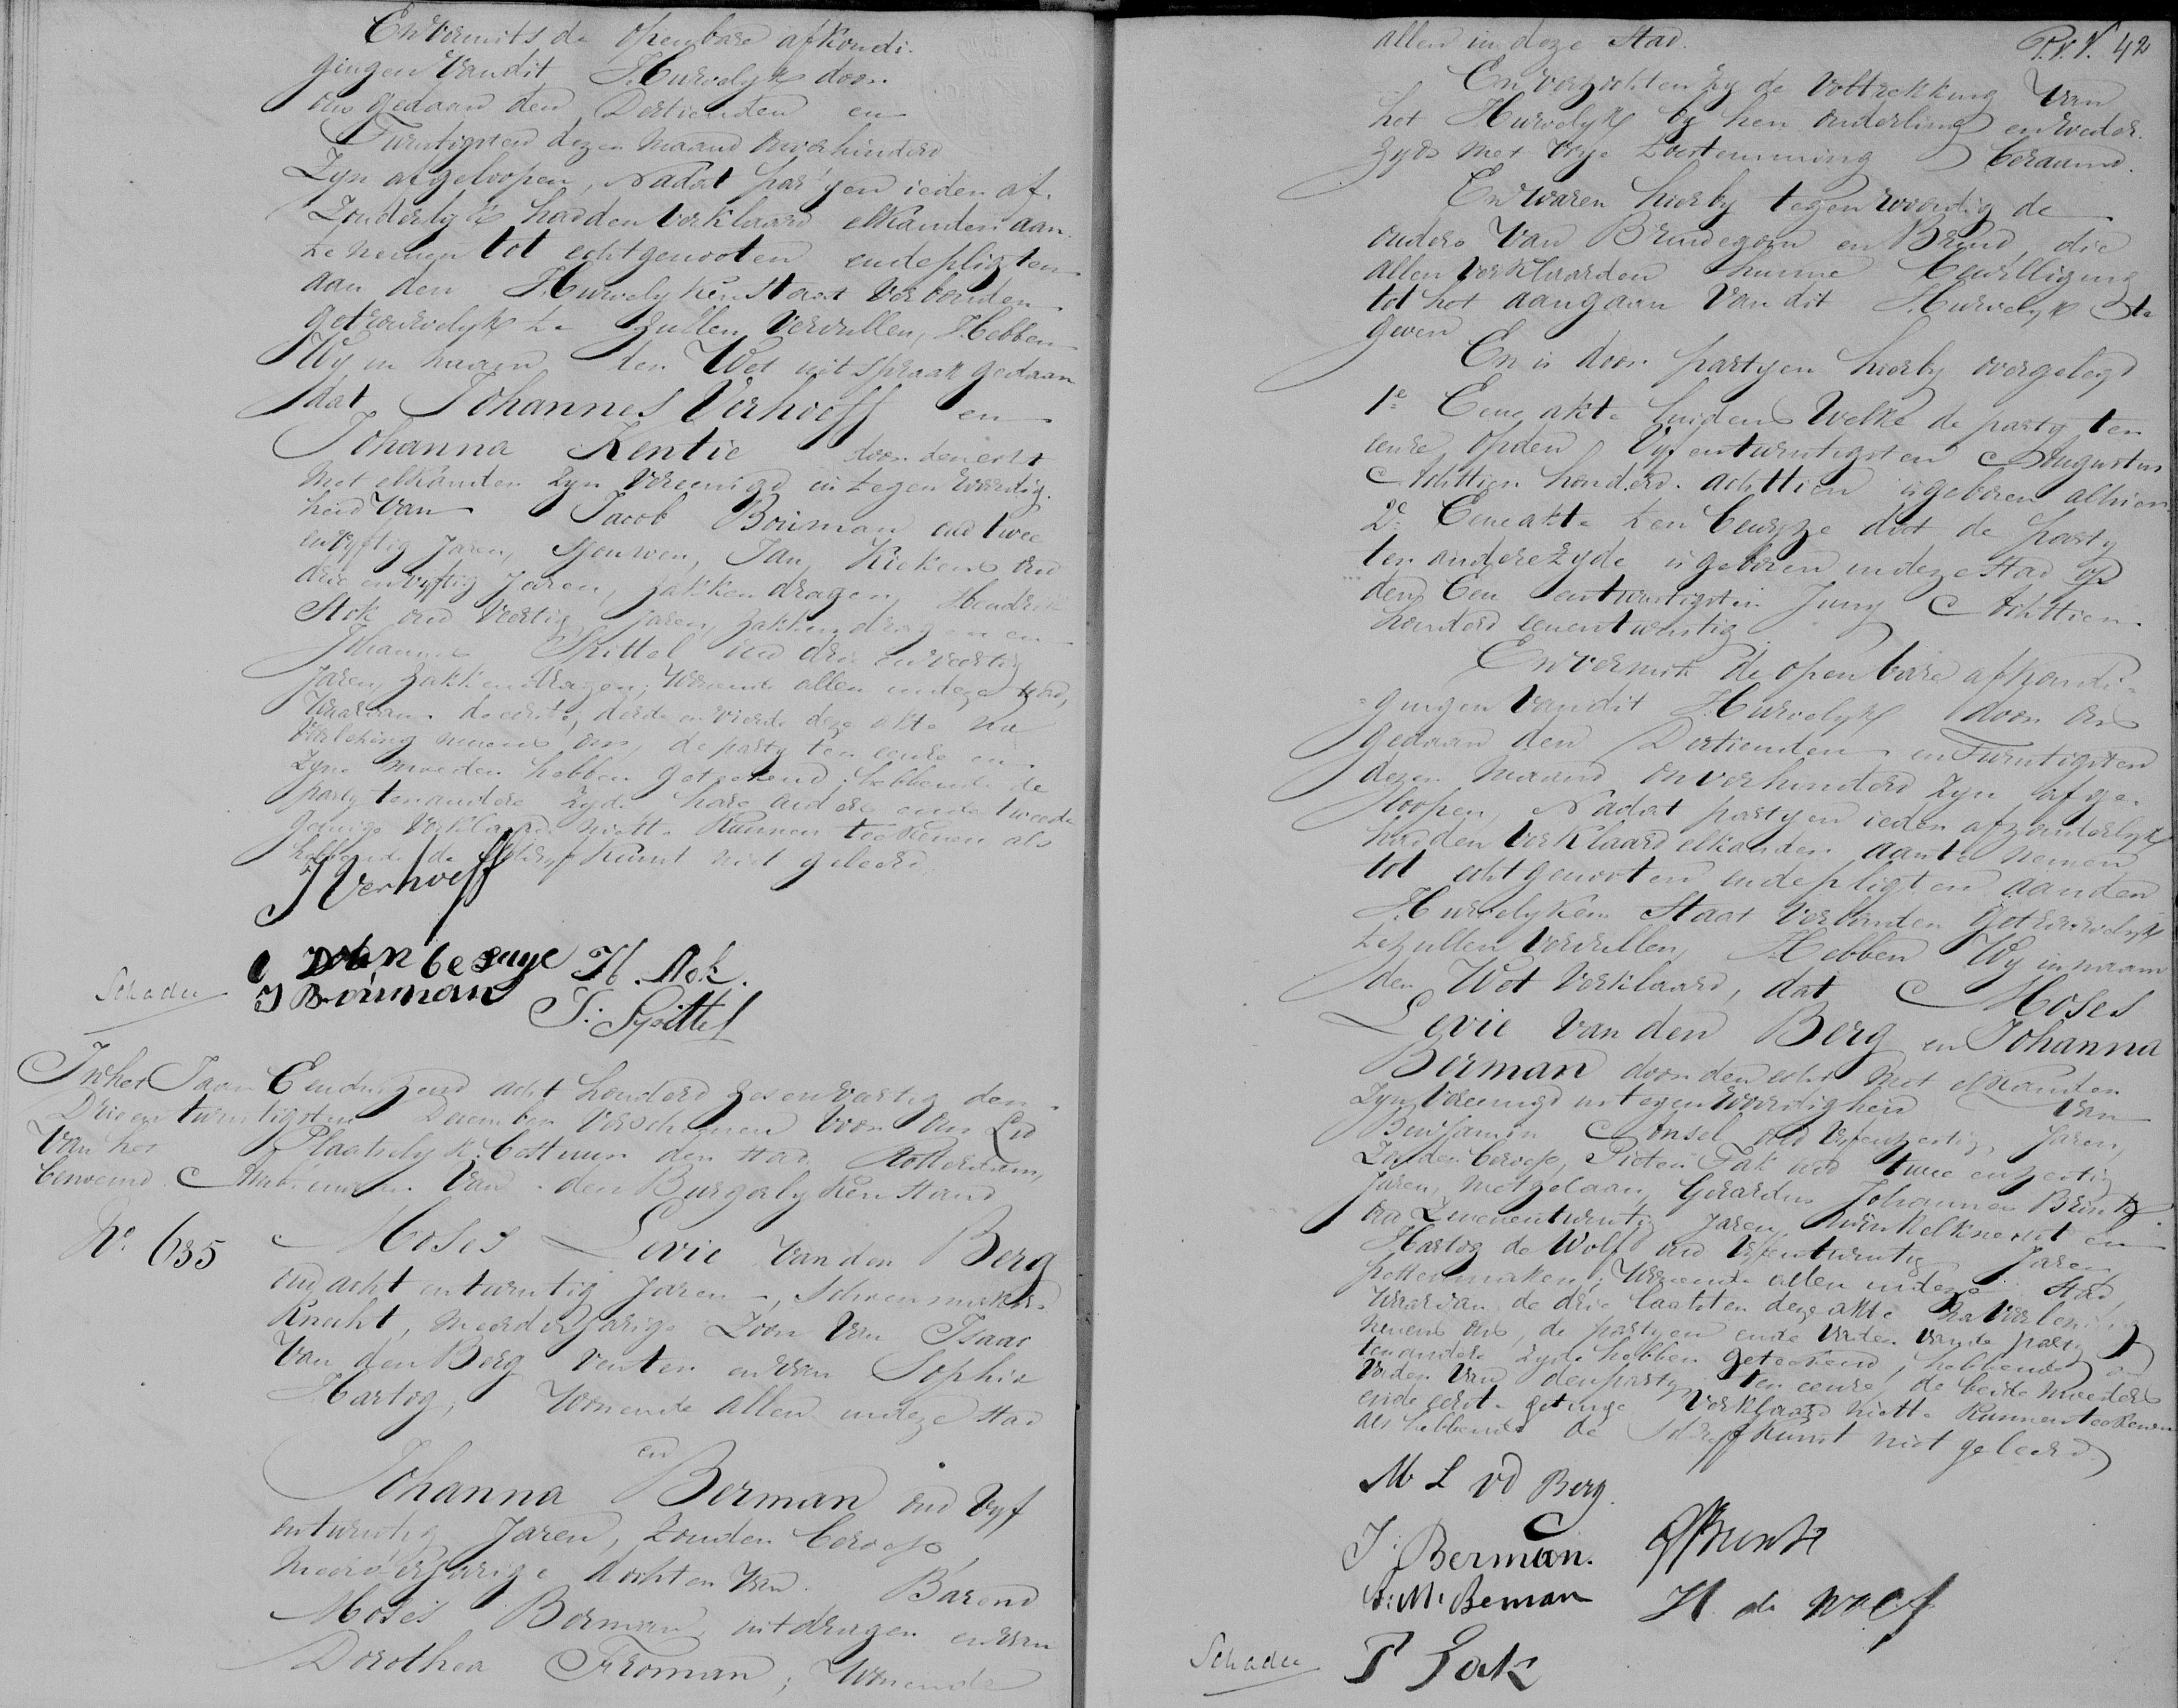 En vermits de openbare afkondi-
gingen van dit Huwelijk door
ons gedaan den Dertienden en
Twintigsten dezer Maand onverhinderd
Zyn afgeloopen, Nadat partyen ieder af-
zonderlyk hadden verklaard elkander aan
te nemen tot echtgenooten en de pligten
aan den Huwelyken Staat verbonden
getrouwelyk te zullen vervullen, Hebben
Wy in naam der Wet uitspraak gedaan
dat Johannes Verhoeff en
Johanna Kentie door den echt
met elkander zyn vereenigd in tegenwoordig-
heid van Jacob Bouman oud twee
en vyftig Jaren, sjouwer, Jan Kiekens oud
drie en vyftig Jaren, zakkendrager, Hendrik
Stok oud veertig Jaren, zakkendrager en
Johannes Spittel oud drie en veertig
Jaren, zakkendrager; Wonende allen in deze stad,
Waarvan de eerste, derde en vierde deze akte na
voorlezing nevens ons, de party ten eenre en
zyne moeder hebben geteekend; hebbende de
party ten andere zyde hare ouders en de tweede
getuige verklaard niet te kunnen teekenen als
hebbende de schryfkunst niet geleerd
J Verhoeff
J Bouman H. Stok.
Schadee J: Spittel
In het Jaar Eenduizend acht honderd zes en veertig den
Drie en twintigsten December verschenen voor ons Lid
van het Plaatselyk bestuur der stad Rotterdam,
benoemd Ambtenaar van den Burgerlyken stand
No. 635 Moses Levie van den Berg
oud acht en twintig Jaren, Schoenmakers-
knecht, meerderjarige Zoon van Isaac
van den Berg venter en van Sophia
Hartog; Wonende allen in deze stad
en
Johanna Berman oud vyf
en twintig Jaren, zonder beroep,
meerderjarige dochter van Barend
Moses Berman, uitdrager en van
Dorothea Froman; Wonende
allen in deze Stad. P.v.V. 42
En verzochten zy de voltrekking van
het Huwelyk by hen onderling en weder-
zyds met vrye toestemming beraamd.
En waren hierby tegenwoordig de
ouders van Bruidegom en Bruid, die
allen verklaarden hunne bewilliging
tot het aangaan van dit Huwelyk te
geven
En is door partyen hierby overgelegd
1e. Eene akte luidens welke de party ten
eenre op den Vyfentwintigsten Augustus
Achttien honderd achttien is geboren alhier
2e. Eene akte ten bewyze dat de party
ten andere zyde is geboren in deze stad op
den Een entwintigsten Juny Achttien
honderd eenentwintig
En vermits de openbare afkondi-
gingen van dit Huwelyk door ons
gedaan den Dertienden en Twintigsten
dezer Maand onverhinderd zyn afge-
loopen, Nadat partyen ieder afzonderlyk
hadden verklaard elkander aan te nemen
tot echtgenooten en de pligten aan den
Huwelyken Staat verbonden getrouwelyk
te zullen vervullen, Hebben Wy in naam
der Wet verklaard, dat Moses
Levie van den Berg en Johanna
Berman door den echt met elkander
zyn vereenigd in tegenwoordigheid van
Benjamin Ansel oud vyfenzestig Jaren,
zonder beroep, Pieter Fak oud twee en zestig
Jaren, metzelaar, Gerardus Johannes Brink
oud zevenentwintig Jaren, winkelknecht en
Hartog de Wolf oud vyfentwintig Jaren,
pettenmaker; Wonende allen in deze Stad,
Waarvan de drie laatsten deze akte na voorlezing
nevens ons, de partyen en de vader van de party
ten andere zyde hebben geteekend, hebbende de
vader van de party ten eenre, de beide moeders
en de eerste getuige verklaard niet te kunnen teekenen
als hebbende de Schryfkunst niet geleerd
M L vd Berg.
J: Berman.
B: M: Beman H. de Wolf
Schadee P Fak